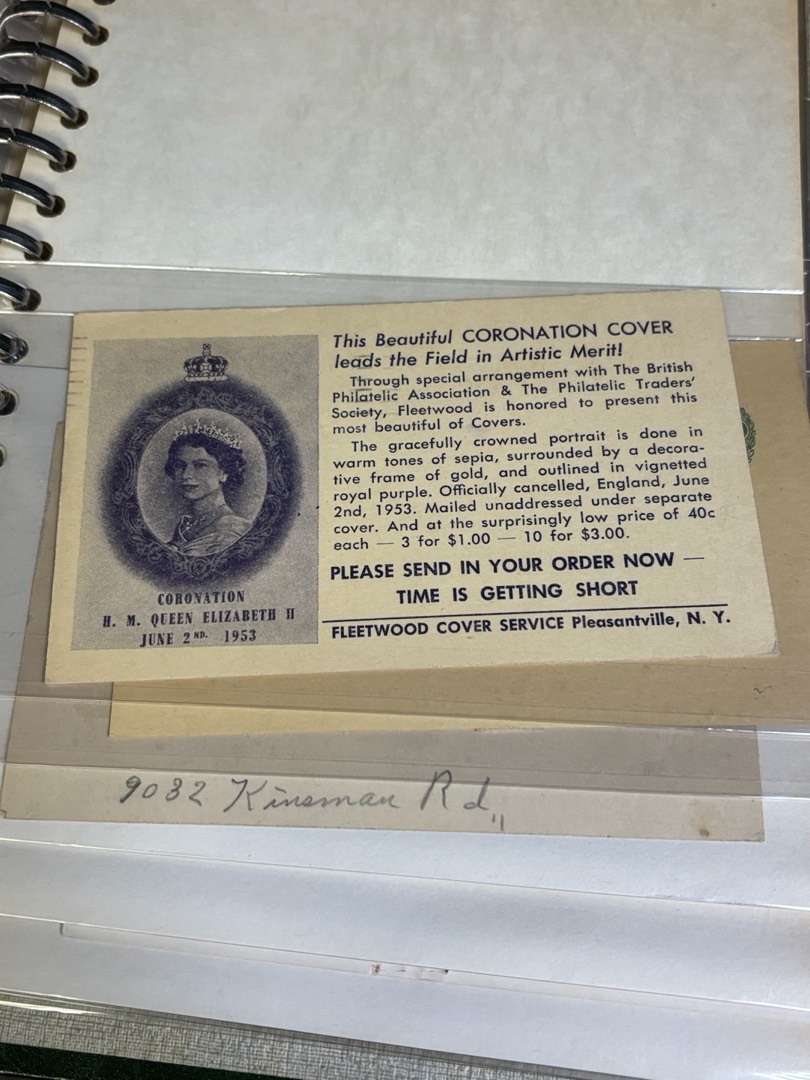 CORONATION
H. M. QUEEN ELIZABETH II
JUNE 2ND. 1953
This Beautiful CORONATION COVER
leads the Field in Artistic Merit!
Through special arrangement with The British
Philatelic Association & The Philatelic Traders'
Society, Fleetwood is honored to present this
most beautiful of Covers.
The gracefully crowned portrait is done in
warm tones of sepia, surrounded by a decora-
tive frame of gold, and outlined in vignetted
royal purple. Officially cancelled, England, June
2nd, 1953. Mailed unaddressed under separate
cover. And at the surprisingly low price of 40c
each — 3 for $1.00 — 10 for $3.00.
PLEASE SEND IN YOUR ORDER NOW —
TIME IS GETTING SHORT
FLEETWOOD COVER SERVICE Pleasantville, N. Y.
9032 Kinsman Rd